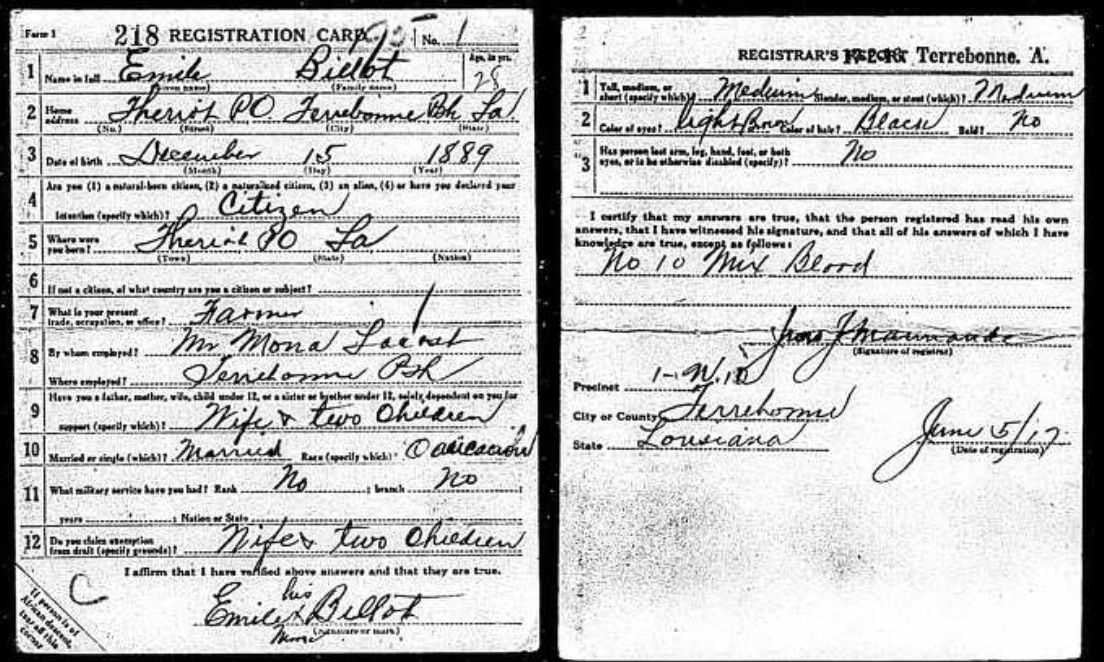 Form 1 218 REGISTRATION CARD No. 1
1 Name in full Emile Billot Age, in yrs.
(Given name) (Family name) 28
2 Home address Theriot PO Terrebonne Psh La
(No.) (Street) (City) (State)
3 Date of birth December 15 1889
(Month) (Day) (Year)
4 Are you (1) a natural-born citizen, (2) a naturalized citizen, (3) an alien, (4) or have you declared your
intention (specify which)? Citizen
5 Where were you born? Theriot PO La
(Town) (State) (Nation)
6 If not a citizen, of what country are you a citizen or subject?
7 What is your present trade, occupation, or office? Farmer
8 By whom employed? Mr Mona
Where employed? Terrebonne Psh
9 Have you a father, mother, wife, child under 12, or a sister or brother under 12, solely dependent on you for
support (specify which)? Wife & two Children
10 Married or single (which)? Married Race (specify which)?
11 What military service have you had? Rank No ; branch No ;
years ; Nation or State
12 Do you claim exemption from draft (specify grounds)? Wife & two Children
I affirm that I have verified above answers and that they are true.
C his
Emile x Billot
(Signature or mark)
If person is of
African descent,
tear off this
corner
REGISTRAR'S REPORT Terrebonne. A.
1 Tall, medium, or short (specify which)? Medium Slender, medium, or stout (which)? Medium
2 Color of eyes? Light Color of hair? Black Bald? No
3 Has person lost arm, leg, hand, foot, or both eyes, or is he otherwise disabled (specify)? No
I certify that my answers are true, that the person registered has read his own
answers, that I have witnessed his signature, and that all of his answers of which I have
knowledge are true, except as follows:
No 10 Mix Blood
(Signature of registrar)
Precinct
City or County Terrebonne
State Louisiana June 5/17
(Date of registration)